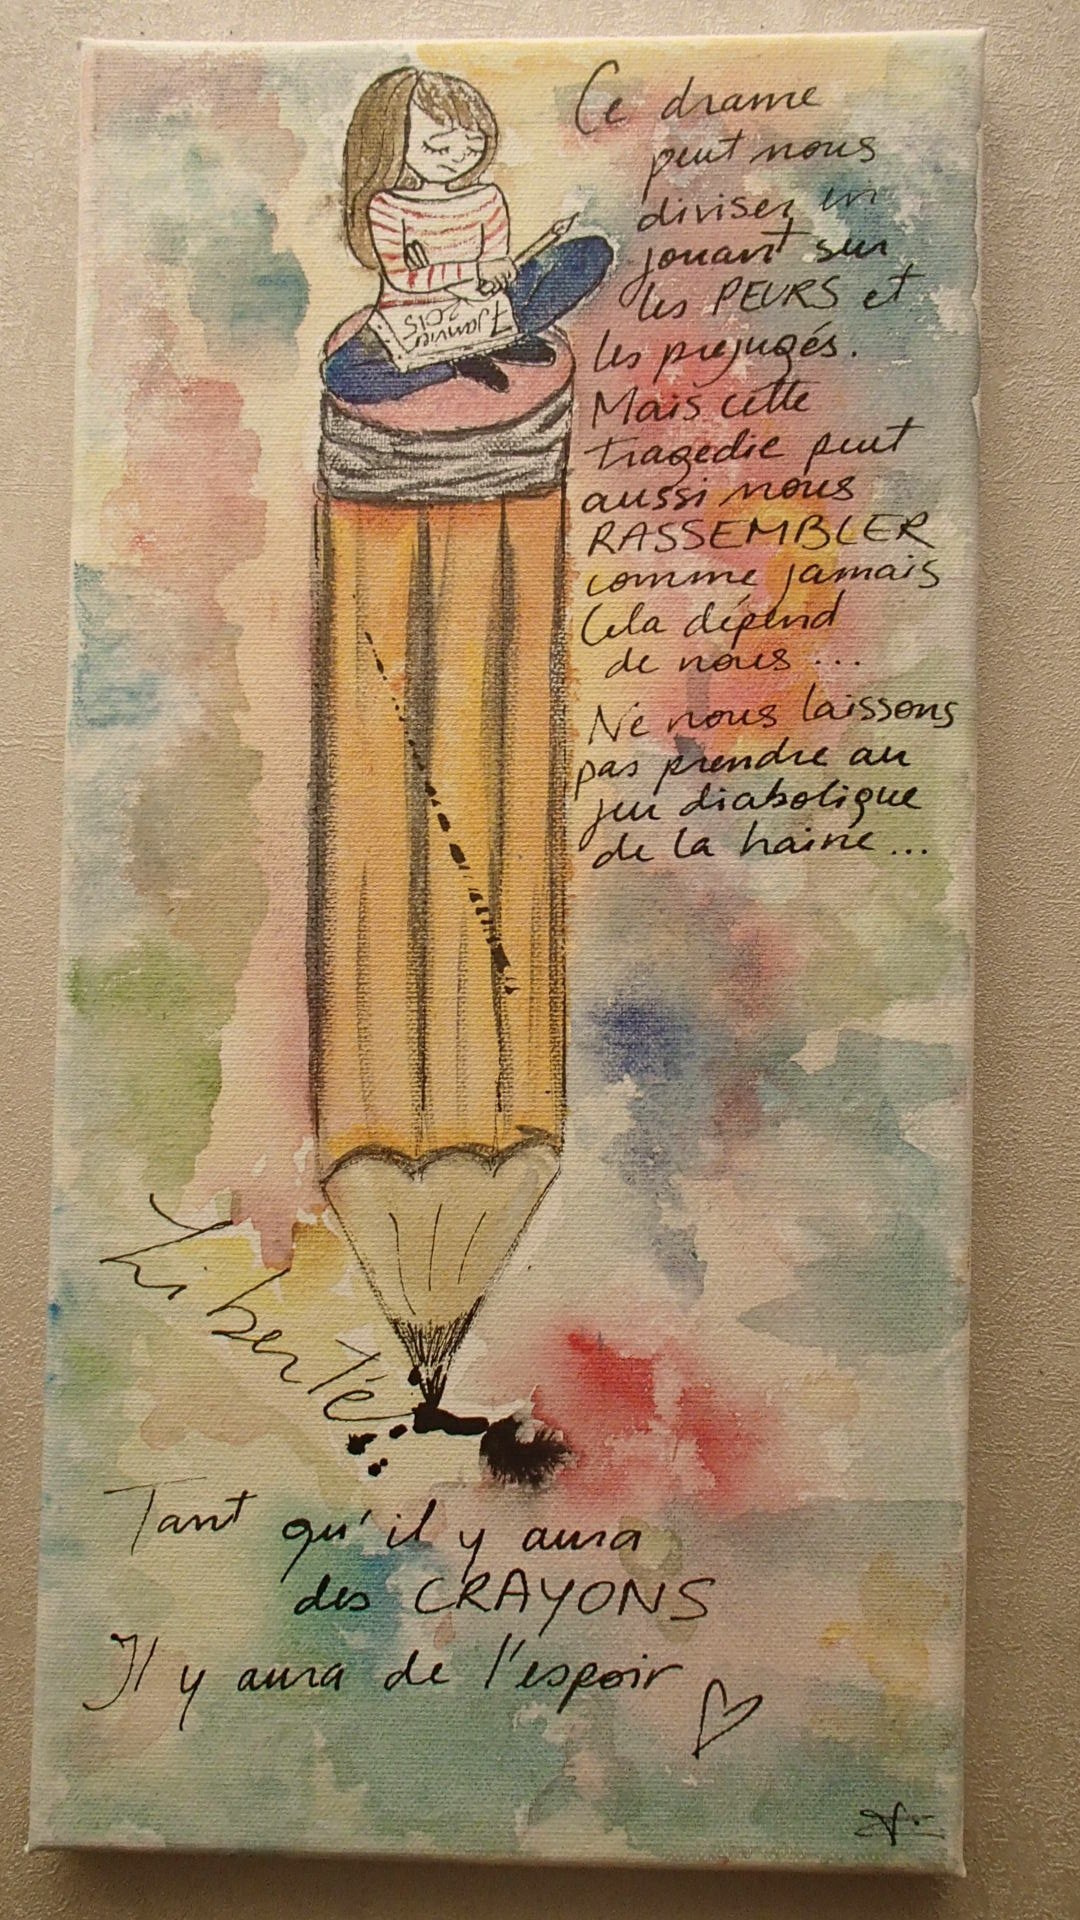 Ce drame
peut nous
diviser en
jouant sur
les PEURS et
les préjugés.
Mais cette
tragedie peut
aussi nous
RASSEMBLER
comme jamais
Cela dépend
de nous...
Ne nous laissons
pas prendre au
jeu diabolique
de la haine...
7 Janvier
2015
Liberté
Tant qu'il y aura
des CRAYONS
Il y aura de l'espoir